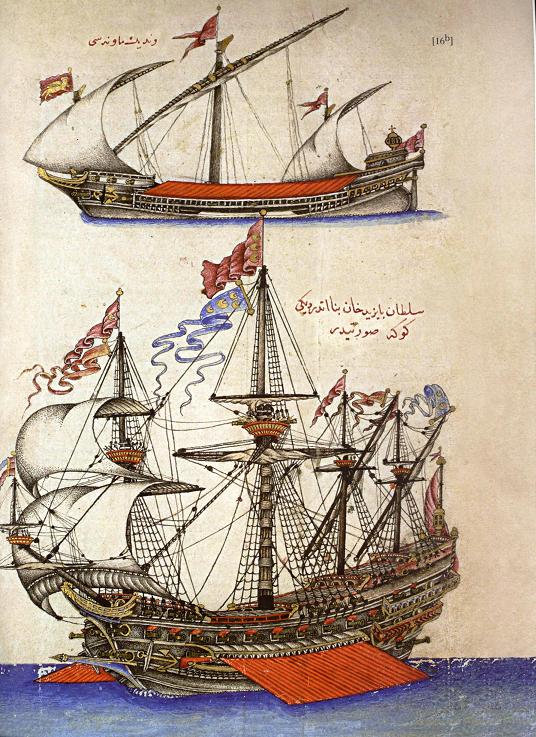 ونديك ماونه سی
[16ᵇ]
سلطان بايزيد خان بنا اتدرديكی
كوكه صورتيدر